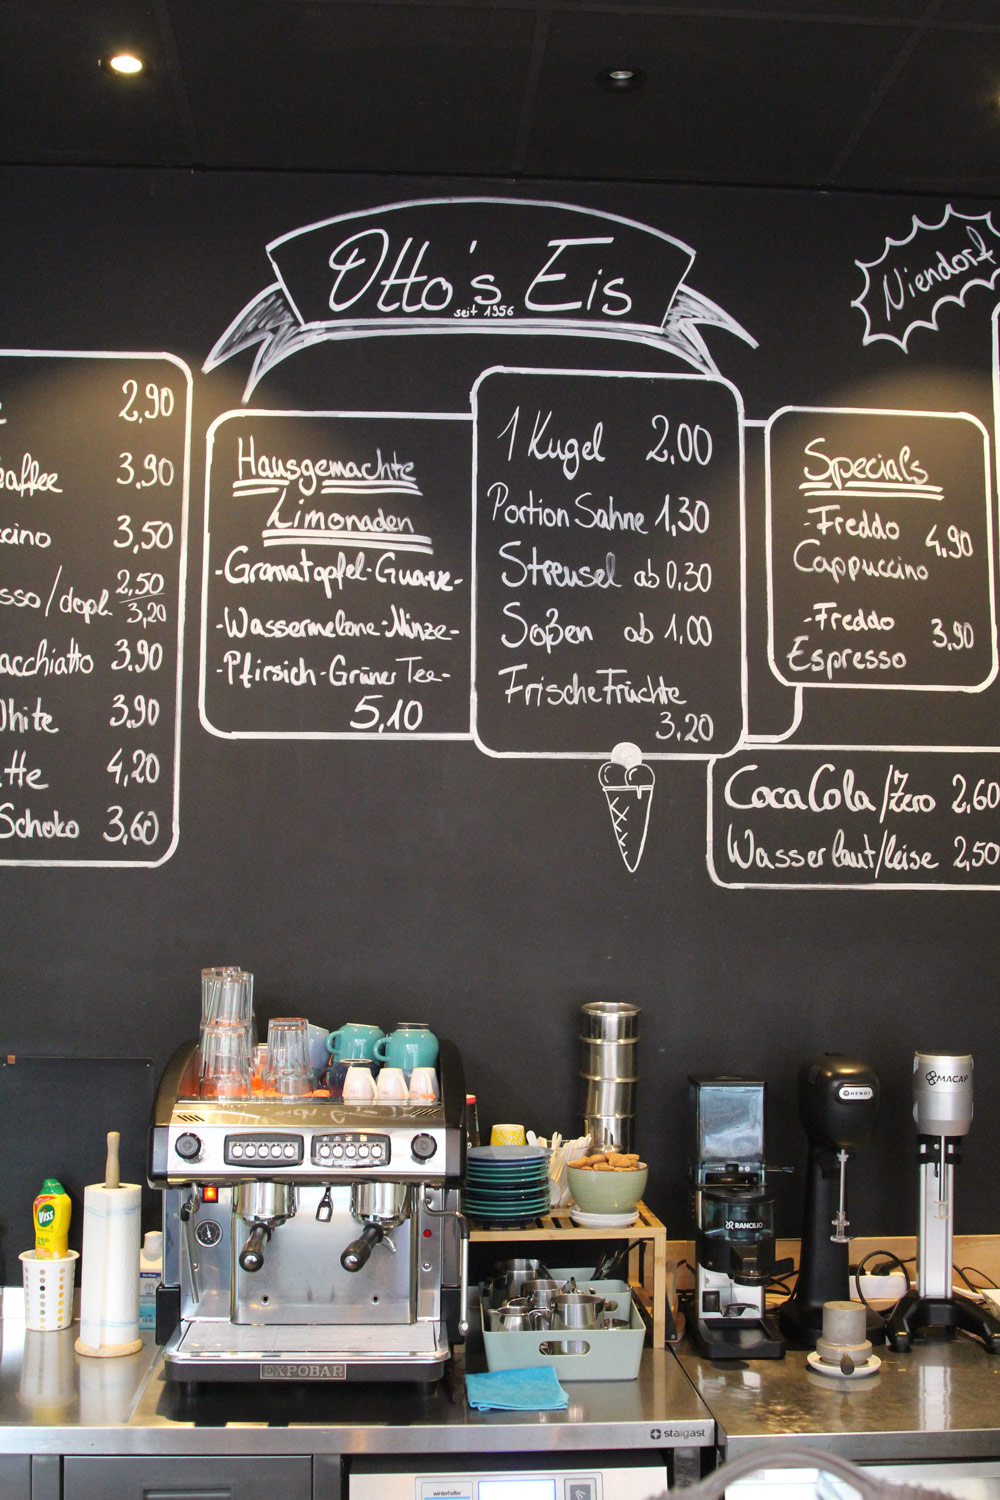 Otto's Eis
seit 1956
Niendorf
2,90
kaffee 3,90
ccino 3,50
sso/dopl. 2,50
3,20
acchiatto 3,90
White 3,90
tte 4,20
Schoko 3,60
Hausgemachte
Limonaden
-Granatapfel-Guave-
-Wassermelone-Minze-
-Pfirsich-Grüner Tee-
5,10
1 Kugel 2,00
Portion Sahne 1,30
Streusel ab 0,30
Soßen ab 1,00
Frische Früchte
3,20
Specials
-Freddo
Cappuccino 4,90
-Freddo
Espresso 3,90
Coca Cola/Zero 2,60
Wasser laut/leise 2,50
VISS
EXPOBAR
RANCILIO
HENDI
MACAP
stalgast
winterhalter